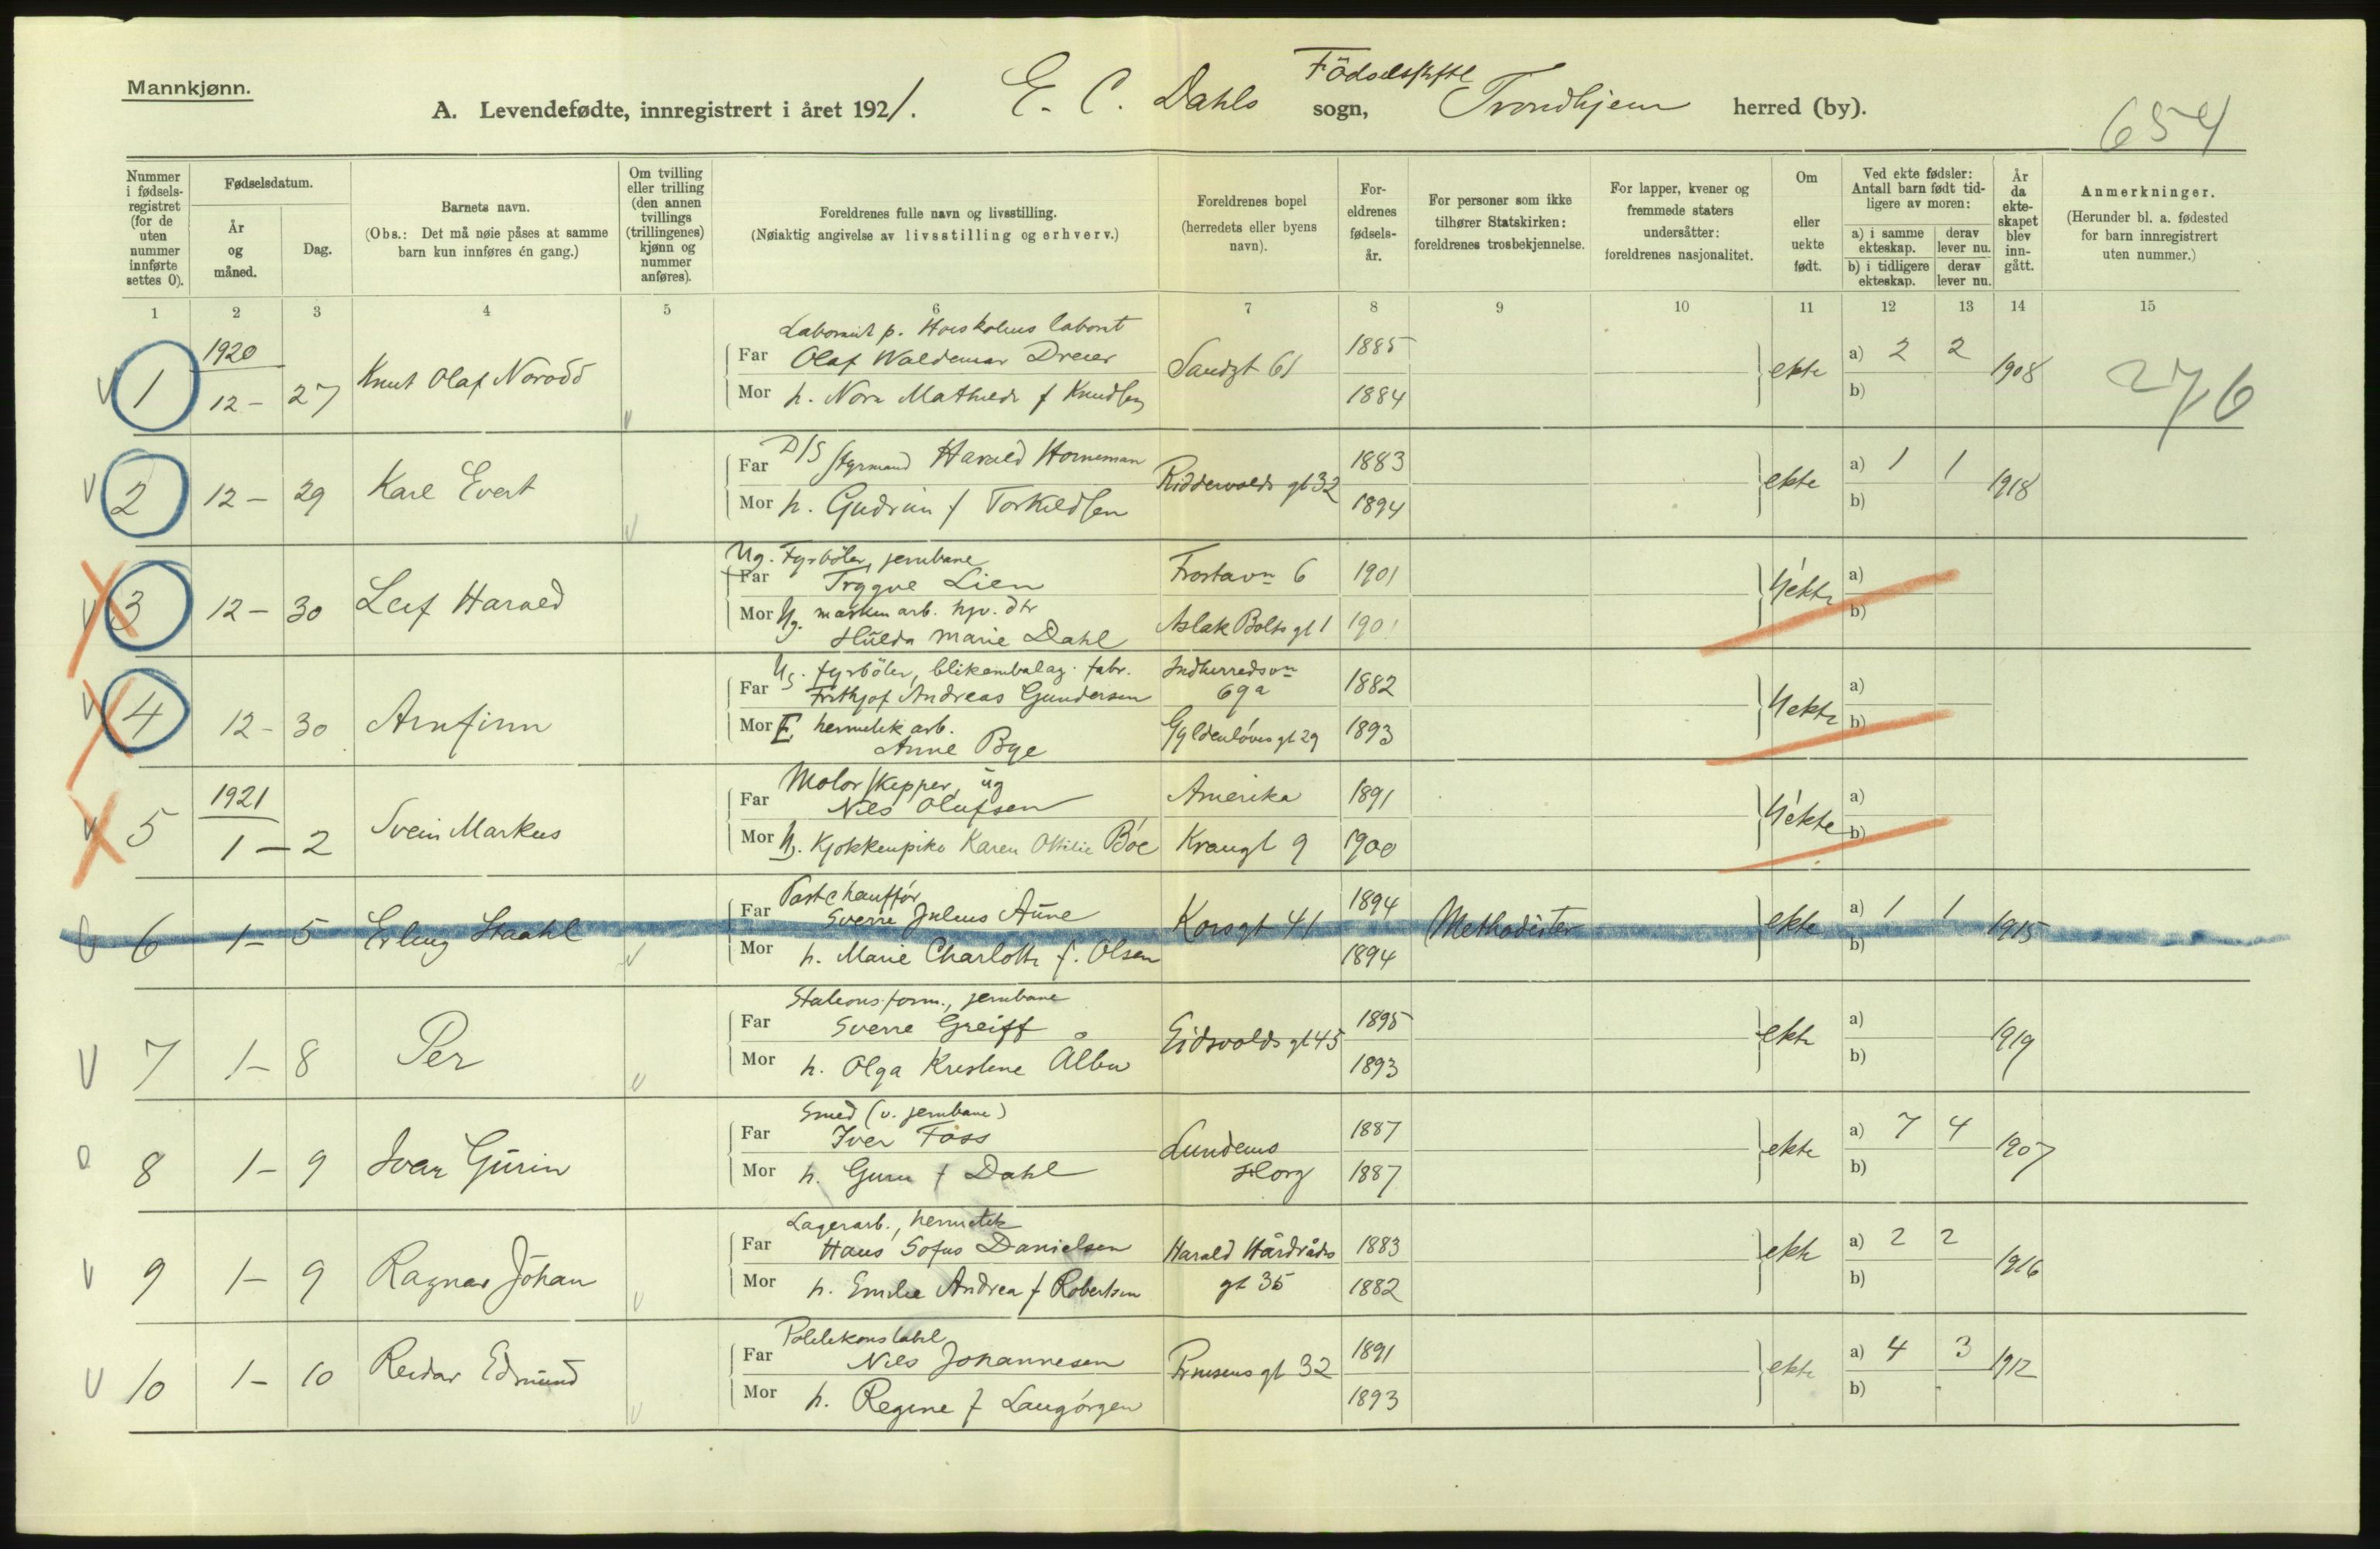 Mannkjønn.
A. Levendefødte, innregistrert i året 1921. E. C. Dahls Födselsstiftl sogn, Trondhjem herred (by).
654
Nummer i fødselsregistret (for de uten nummer innførte settes 0).
Fødselsdatum.
År og måned.
Dag.
Barnets navn.
(Obs.: Det må nøie påses at samme barn kun innføres én gang.)
Om tvilling eller trilling (den annen tvillings (trillingenes) kjønn og nummer anføres).
Foreldrenes fulle navn og livsstilling.
(Nøiaktig angivelse av livsstilling og erhverv.)
Foreldrenes bopel
(herredets eller byens navn).
Foreldrenes fødselsår.
For personer som ikke tilhører Statskirken: foreldrenes trosbekjennelse.
For lapper, kvener og fremmede staters undersåtter: foreldrenes nasjonalitet.
Om eller uekte født.
Ved ekte fødsler: Antall barn født tidligere av moren:
a) i samme ekteskap.
derav lever nu.
b) i tidligere ekteskap.
derav lever nu.
År da ekteskapet blev inngått.
Anmerkninger.
(Herunder bl. a. fødested for barn innregistrert uten nummer.)
1 2 3 4 5 6 7 8 9 10 11 12 13 14 15
Laborant p. Høiskolens laborat
1 1920 12 - 27 Knut Olaf Norodd
Far Olaf Waldemar Dreier Sandgt 61 1885 ekte a) 2 2 1908 276
Mor h. Nora Mathilde f Knudsen 1884 b)
2 12 - 29 Karl Evert
Far D/S styrmand Harald Horneman Riddervolds gt 32 1883 ekte a) 1 1 1918
Mor h. Gudrun f Torkildsen 1894 b)
Ug. Fyrböter, jernbane
3 12 - 30 Leif Harald
Far Trygve Lien Frostavn 6 1901 Uekte a)
Mor Ug. maskin arb. hjv. dtr
Hulda Marie Dahl Aslak Bolts gt 1 1901 b)
Ug. fyrböter, blikembalag. fabr. Indherredsvn
4 12 - 30 Arnfinn
Far Frithjof Andreas Gundersen 69a 1882 Uekte a)
Mor E. hermetik arb.
Anne Bye Gyldenløves gt 29 1893 b)
Motorskipper, ug
5 1921 1 - 2 Svein Markus
Far Nils Olufsen Amerika 1891 Uekte a)
Mor Ug. Kjøkkenpike Karen Ottilie Böe Krangt 9 1900 b)
6 1 - 5 Erling Staahl
Far Sverre Julius Aune Korsgt 41 1894 Methodister ekte a) 1 1 1915
Mor h. Marie Charlotte f. Olsen 1894 b)
Stationsform., jernbane
7 1 - 8 Per
Far Sverre Greiff Eidsvolds gt 45 1895 ekte a) 1919
Mor h. Olga Kristine Ålbu 1893 b)
Smed (v. jernbane)
8 1 - 9 Ivar Gurin
Far Iver Foss Lundemo 1887 ekte a) 7 4 1907
Mor h. Guru f Dahl Horg 1887 b)
Lagerarb., hermetik
9 1 - 9 Ragnar Johan
Far Hans Sofus Danielsen Harald Hårdråds 1883 ekte a) 2 2 1916
Mor h. Emilie Andrea f Robertsen gt 35 1882 b)
Politikonstabel
10 1 - 10 Reidar Edmund
Far Nils Johannesen Prinsens gt 32 1891 ekte a) 4 3 1912
Mor h. Regine f Laugørgen 1893 b)